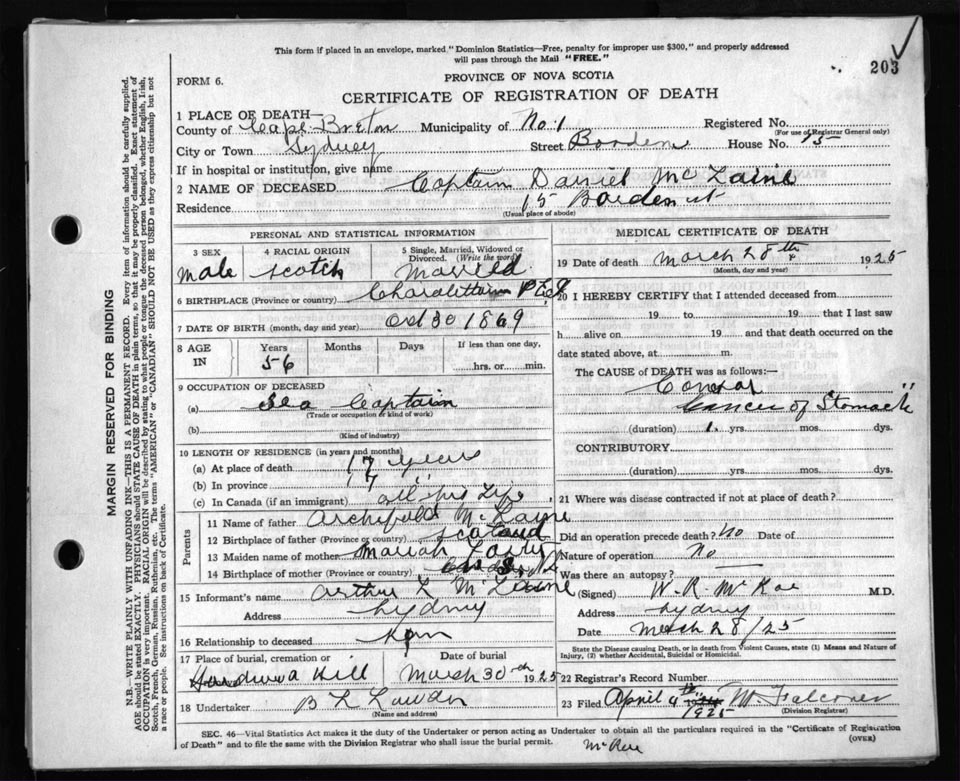 This form if placed in an envelope, marked "Dominion Statistics—Free, penalty for improper use $300," and properly addressed
will pass through the Mail "FREE."
203
FORM 6.
PROVINCE OF NOVA SCOTIA
CERTIFICATE OF REGISTRATION OF DEATH
1 PLACE OF DEATH—
County of Cape Breton Municipality of No. 1 Registered No.
(For use of Registrar General only)
City or Town Sydney Street Borden House No. 15
If in hospital or institution, give name
2 NAME OF DECEASED Captain Daniel McLaine
Residence 15 Borden st
(Usual place of abode)
PERSONAL AND STATISTICAL INFORMATION
3 SEX 4 RACIAL ORIGIN 5 Single, Married, Widowed or
Divorced. (Write the word)
Male Scotch Married
6 BIRTHPLACE (Province or country) P E I
7 DATE OF BIRTH (month, day and year) Oct 30 1869
8 AGE IN Years Months Days If less than one day,
56 hrs. or min.
9 OCCUPATION OF DECEASED
(a) Sea Captain
(Trade or occupation or kind of work)
(b)
(Kind of industry)
10 LENGTH OF RESIDENCE (in years and months)
(a) At place of death 17 years
(b) In province 17 "
(c) In Canada (if an immigrant) all his Life
Parents
11 Name of father Archibald McLaine
12 Birthplace of father (Province or country) Scotland
13 Maiden name of mother Mariah
14 Birthplace of mother (Province or country)
15 Informant's name Arthur L McLaine
Address Sydney
16 Relationship to deceased
17 Place of burial, cremation or Date of burial
Hill March 30th 1925
18 Undertaker B L
(Name and address)
MEDICAL CERTIFICATE OF DEATH
19 Date of death March 28th 1925
(Month, day and year)
20 I HEREBY CERTIFY that I attended deceased from
19 to 19 that I last saw
h alive on 19 and that death occurred on the
date stated above, at m.
The CAUSE of DEATH was as follows:—
Cancer of Stomach
(duration) 1 yrs. mos. dys.
CONTRIBUTORY
(duration) yrs. mos. dys.
21 Where was disease contracted if not at place of death?
Did an operation precede death? No Date of
Nature of operation No
Was there an autopsy?
(Signed) W. R. McRae M.D.
Address Sydney
Date March 28/25
State the Disease causing Death, or in death from Violent Causes, state (1) Means and Nature of
Injury, (2) whether Accidental, Suicidal or Homicidal.
22 Registrar's Record Number
23 Filed April 9th 1925 M. Falconer
(Division Registrar)
SEC. 46—Vital Statistics Act makes it the duty of the Undertaker or person acting as Undertaker to obtain all the particulars required in the "Certificate of Registration
of Death" and to file the same with the Division Registrar who shall issue the burial permit. (OVER)
McRae
MARGIN RESERVED FOR BINDING
N.B.—WRITE PLAINLY WITH UNFADING INK—THIS IS A PERMANENT RECORD. Every item of information should be carefully supplied.
AGE should be stated EXACTLY. PHYSICIANS should STATE CAUSE OF DEATH in plain terms, so that it may be properly classified. Exact statement of
OCCUPATION is very important. RACIAL ORIGIN will be described by stating to what people or tongue the deceased person belonged, whether English, Irish,
Scotch, French, German, Russian, Ruthenian, etc. The terms "AMERICAN" or "CANADIAN" SHOULD NOT BE USED as they express citizenship but not
a race or people. See instructions on back of Certificate.